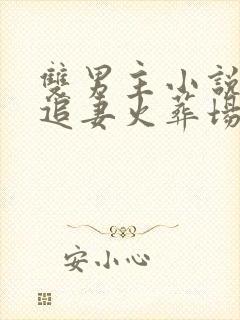 雙男主小說
追妻火葬場
安小心